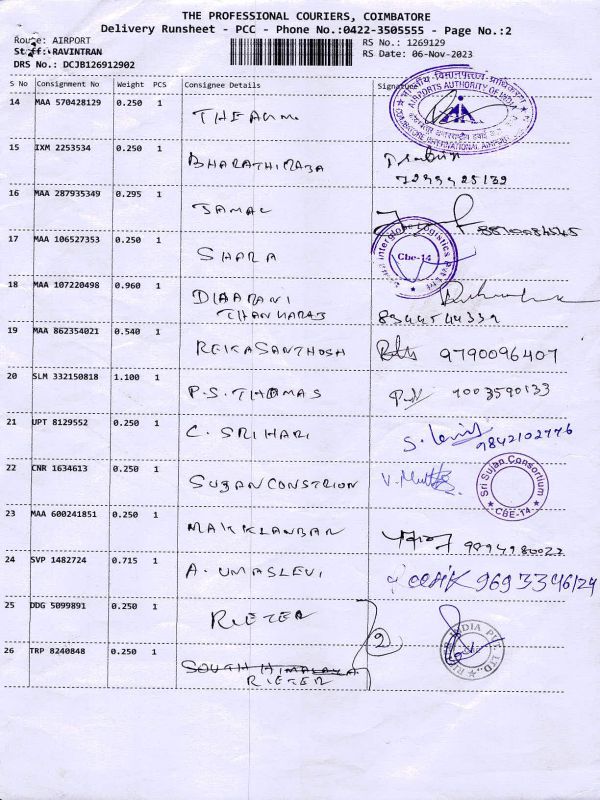 THE PROFESSIONAL COURIERS, COIMBATORE
Delivery Runsheet - PCC - Phone No.:0422-3505555 - Page No.:2
Route: AIRPORT
RS No.: 1269129
Staff: RAVINTRAN
RS Date: 06-Nov-2023
DRS No.: DCJB126912902
S No Consignment No Weight PCS Consignee Details Signature
14 MAA 570428129 0.250 1
AIRPORTS AUTHORITY OF INDIA
15 IXM 2253534 0.250 1 BHARATHIRAJA
7299925139
16 MAA 287935349 0.295 1 JAMAL
17 MAA 106527353 0.250 1 SHARA
Interglobe Logistics Pvt Ltd
Cbe-14
18 MAA 107220498 0.960 1
8344544339
19 MAA 862354021 0.540 1 REIKASANTHOSH 9790096407
20 SLM 332150818 1.100 1 P.S. THOMAS
21 UPT 8129552 0.250 1 C. SRI HARI
9842102776
22 CNR 1634613 0.250 1 SUJAN CONSTRION
Sri Sujan Consortium
CBE-14
23 MAA 600241851 0.250 1
24 SVP 1482724 0.715 1
25 DDG 5099891 0.250 1 RIETER
2
26 TRP 8240848 0.250 1 SOUTH HIMALAYA
RIETER
INDIA PVT. LTD.